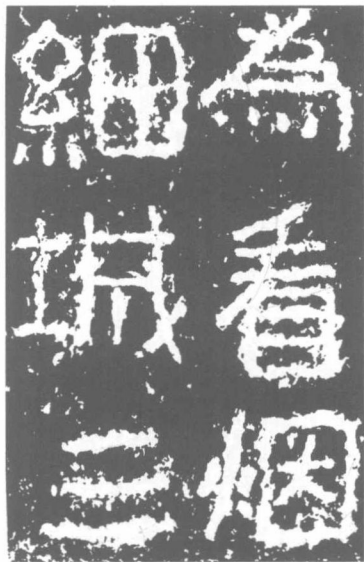 為看烟
細城三